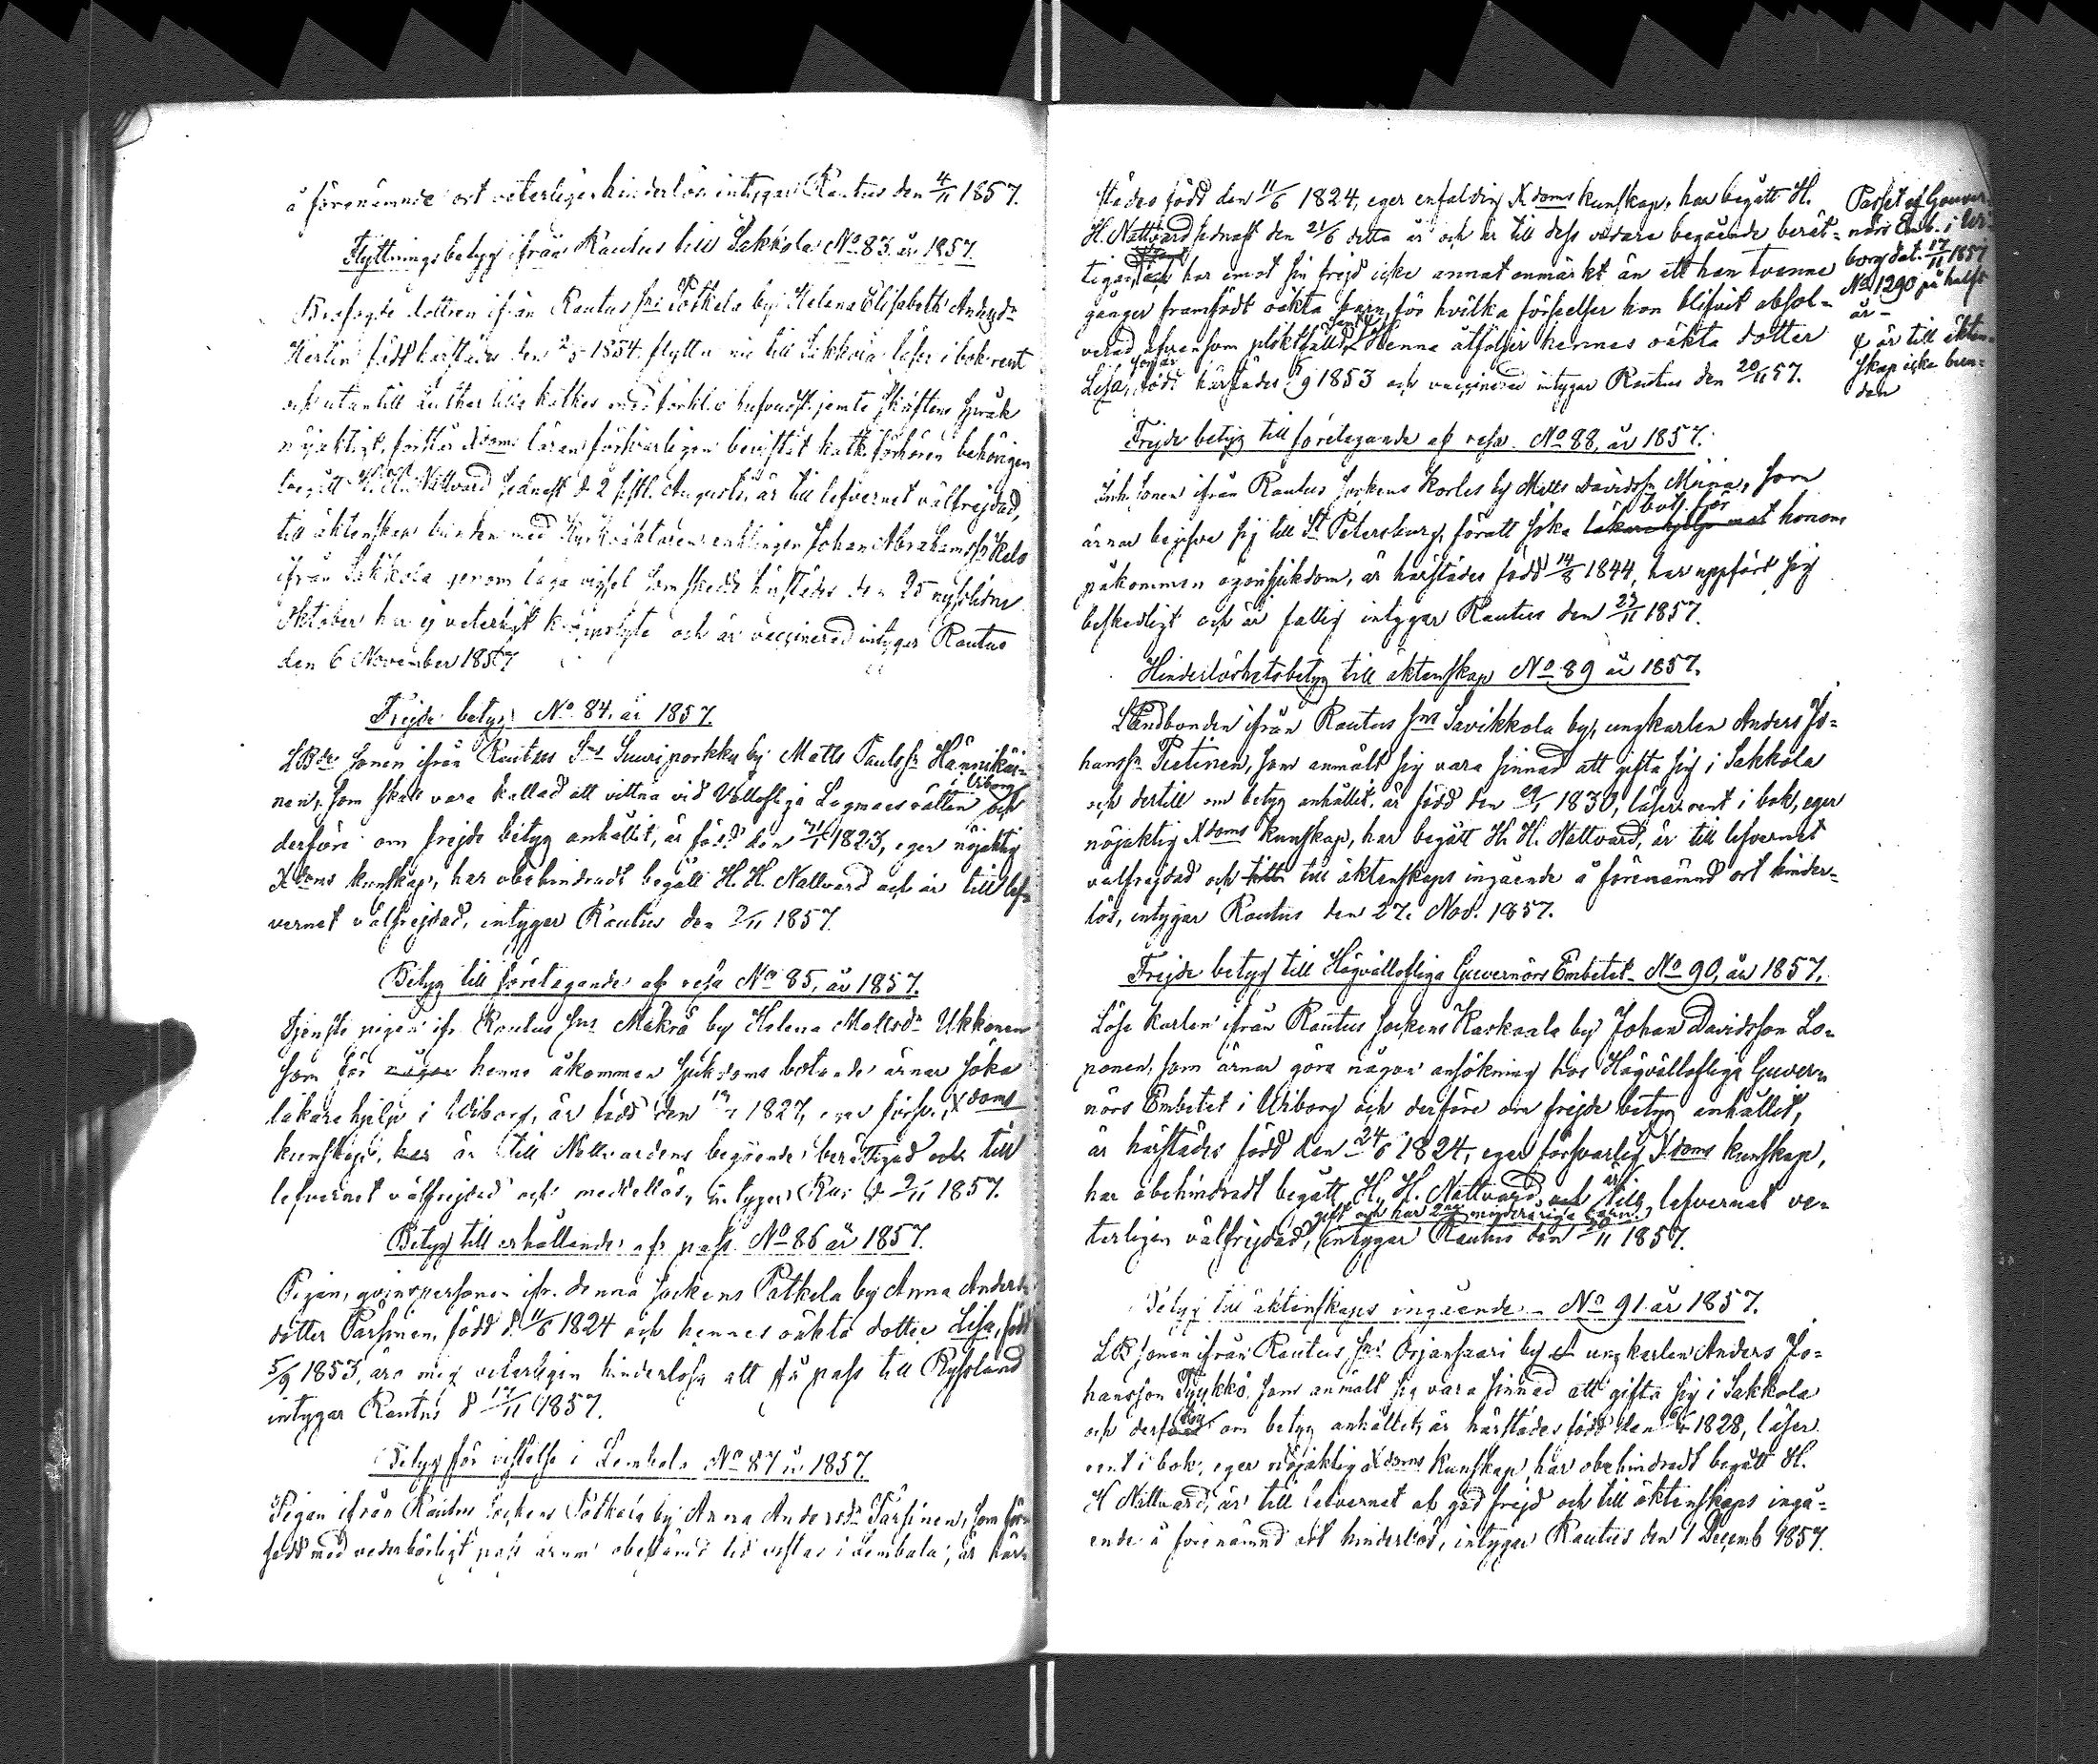 å förenämnde ort veterligen hinderlös intygar Rautus den 4/11 1857.
Flyttningsbetyg ifrån Rautus till Sakkola No 83. år 1857.
dottren ifrån Rautus sns Potkela by Helena Elisabeth Andersdr
född härstädes den 1834. flyttar nu till Sakkola läser i bok rent
och utantill Luther lilla katkes med förkl. jemte skriftens språk
nöjaktigt, förstår Xdoms läran försvarligen bevistat katk. förhören behörigen
begått H. H. Nattvard sednast d. 2 sistl. Augusti, är till lefvernet välfrejdad,
till äktenskap bunden med enklingen Johan Abrahamssn
ifrån Sakkola genom laga vigsel som skedde härstädes den 25
Oktober har ej veterligt och är vaccinerad intygar Rautus
den 6 November 1857
Frejde betyg No 84. år 1857.
LBde sonen ifrån Rautus Sns Suuriporkku by Matts Paulssn Hännikäi-
nen, som skall vara kallad att vittna vid Vällofliga Lagmansrätten i Wiborg och
derföre om frejde betyg anhållit, är född den 1823, eger nöjaktig
Xdoms kunskap, har obehindradt begått H. H. Nattvard och är till lef-
vernet välfrejdad, intygar Rautus den 7/11 1857.
Betyg till företagande af resa No 85, år 1857.
Tjenste pigan ifr. Rautus sns Mäkrä by Helena Mattsdr Ukkonen
som för någon henne åkommen sjukdoms botande ärnar söka
läkarehjelp i Wiborg, är född den 1827, eger försv. Xdoms
kunskap, har är till Nattvardens begående berättigad och till
lefvernet välfrejdad och medellös, intygar Rau: d. 9/11 1857.
Betyg till erhållande af pass No 86 år 1857.
Pigan, qvinspersonen ifr. denna sockens Potkela by Anna Anders-
dotter Pärsinen, född d. 11/6 1824 och hennes oäkta dotter Lisa, född
5/9 1853, äro mig veterligen hinderlösa att få pass till Ryssland
intygar Rautus d 17/11 1857.
Betyg för vistelse i Lembala No 87 år 1857.
Pigan ifrån Rautus sockens Potkela by Anna Andersdr Pärsinen, som för-
sedd med vederbörligt pass ärnar obestämd tid vistas i Lembala, är härs-
städes född den 11/6 1824, eger enfaldig Xdoms kunskap, har begått H.
H. Nattvard sednast den 21/6 detta år och är till dess vidare begående berät-
tigad och har emot sin frejd icke annat anmärkt än att hon tvenne
gånger framfödt oäkta barn, för hvilka förseelser hon blifvit absol-
verad äfvensom pliktfälld. Henne åtföljer hennes oäkta dotter
Lisa, som är född härstädes 5/9 1853 och vaccinerad intygar Rautus den 20/11 57.
Passet af Gouver-
nörs Emb. i Wi-
borg dat. 17/11 1857
No 1290 på halft
år -
& är till äkten-
skap icke bun-
den
Frejde betyg till företagande af resa No 88, år 1857.
Inh. sonen ifrån Rautus sockens Korles by Matts Davidssn Miina, som
ärnar begifva sig till St Petersburg, föratt söka bot för honom
påkommen ögonsjukdom, är härstädes född 14/8 1844, har uppfört sig
beskedligt och är fattig intygar Rautus den 23/11 1857.
Hinderlöshetsbetyg till äktenskap No 89 år 1857.
Landbonden ifrån Rautus sns Savikkola by, ungkarlen Anders Jo-
hanssn Pietinen, som anmält sig vara sinnad att gifta sig i Sakkola
och dertill om betyg anhållit, är född den 29/1 1830, läser rent i bok, eger
nöjaktig Xdoms kunskap, har begått H. H. Nattvard, är till lefvernet
välfrejdad och till äktenskaps ingående å förenämnd ort hinder-
lös, intygar Rautus den 27. Nov. 1857.
Frejde betyg till Högvällofliga Guvernörs Embetet No 90, år 1857.
Löse karlen ifrån Rautus sockens Kaskaala by Johan Davidsson Lo-
ponen, som ärnar göra någon ansökning hos Högvällofliga Guver-
nörs Embetet i Wiborg och derföre om frejde betyg anhållit,
är härstädes född den 24/6 1824, eger försvarlig Xdoms kunskap,
har obehindradt begått H. H. Nattvard, och är till lefvernet ve-
terligen välfrejdad, gift och har 2ne minderåriga barn, intygar Rautus den 30/11 1857.
Betyg till äktenskaps ingående No 91 år 1857.
LB sonen ifrån Rautus sns Orjansaari by ungkarlen Anders Jo-
hansson Pyykkö, som anmält sig vara sinnad att gifta sig i Sakkola
och om betyg anhållit, är härstädes född den 1828, läser
rent i bok, eger nöjaktig Xdoms kunskap, har obehindradt begått H.
H Nattvard, är till lefvernet af god frejd och till äktenskaps ingå-
ende å förenämnd ort hinderlös, intygar Rautus den 1 Decemb 1857.